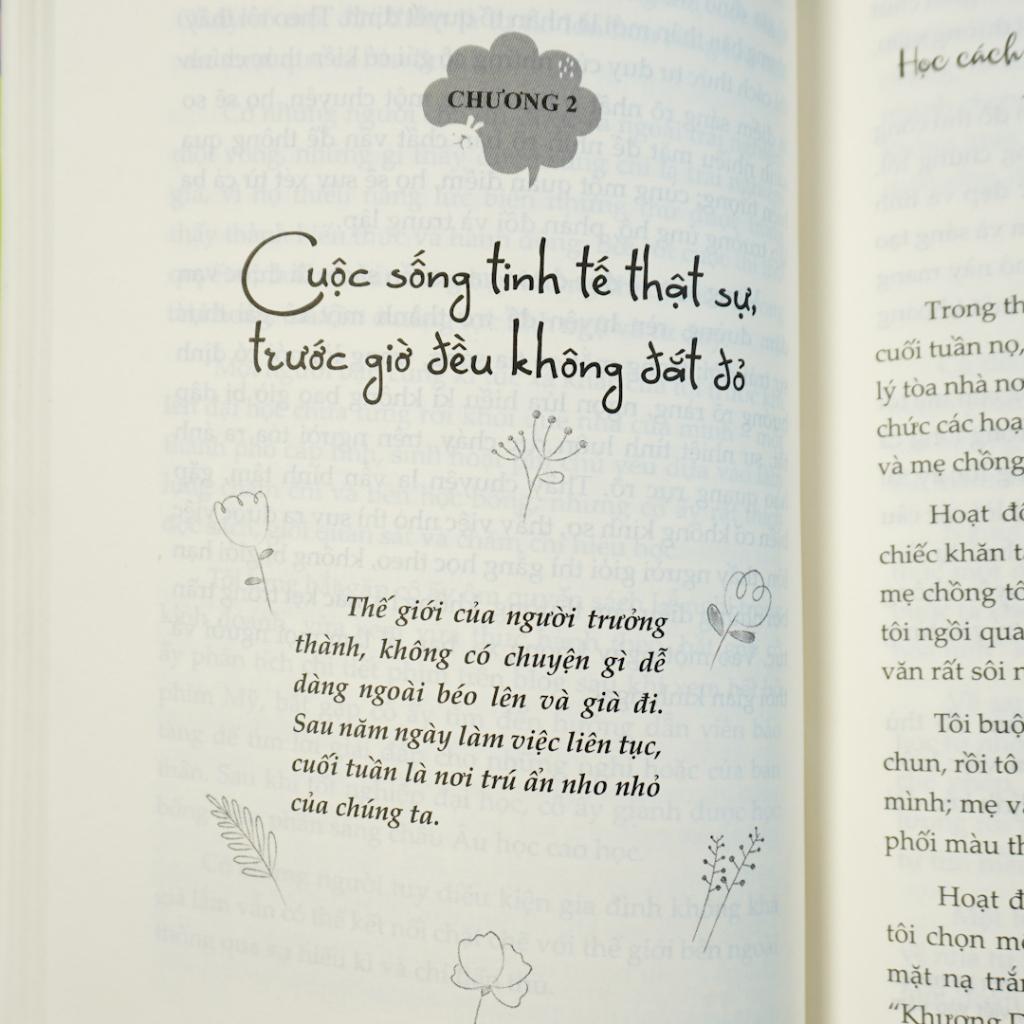 CHƯƠNG 2
Cuộc sống tinh tế thật sự,
trước giờ đều không đắt đỏ
Thế giới của người trưởng
thành, không có chuyện gì dễ
dàng ngoài béo lên và già đi.
Sau năm ngày làm việc liên tục,
cuối tuần là nơi trú ẩn nho nhỏ
của chúng ta.
Học cách
Trong
cuối tuần nọ,
lý tòa nhà
chức các
và mẹ chồng
Hoạt
chiếc khăn
mẹ chồng
tôi ngồi qua
văn rất sôi
Tôi
chun, rồi tô
mình; mẹ
phối màu
Hoạt
tôi chọn
mặt nạ
“Khương